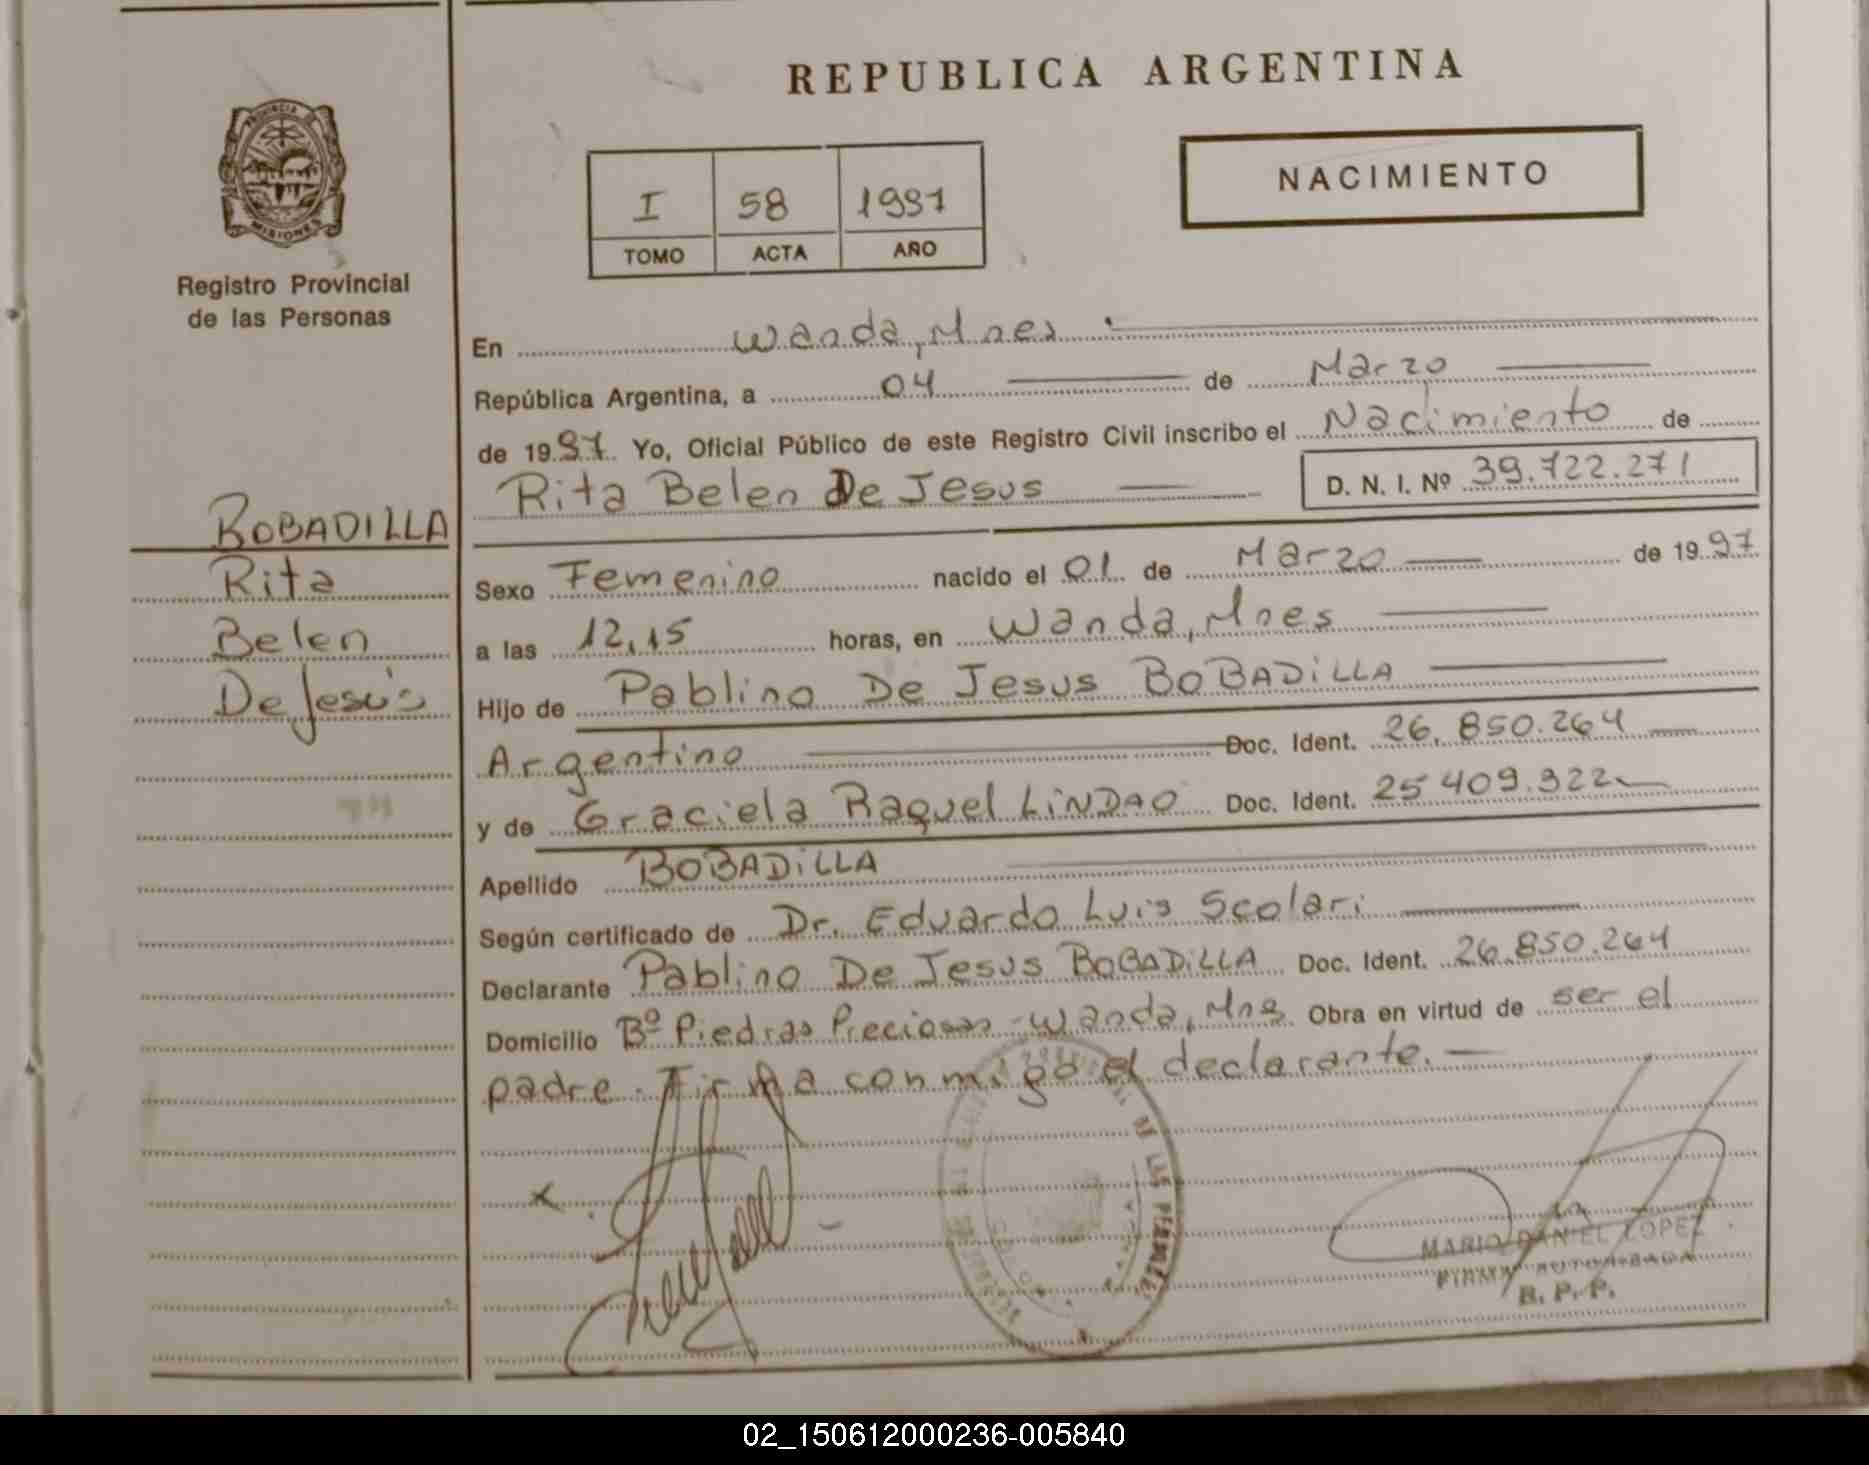 REPUBLICA ARGENTINA
PROVINCIA DE MISIONES
Registro Provincial
de las Personas
I 58 1997
TOMO ACTA AÑO
NACIMIENTO
En Wanda, Mnes
República Argentina, a 04 de Marzo
de 1997. Yo, Oficial Público de este Registro Civil inscribo el Nacimiento de
Rita Belen De Jesus D. N. I. Nº 39.722.271
BOBADILLA
Rita
Belen
De Jesús
Sexo Femenino nacido el 01 de Marzo de 1997
a las 12,15 horas, en Wanda, Mnes
Hijo de Pablino De Jesus BOBADiLLA
Argentino Doc. Ident. 26.850.264
y de Graciela Raquel LiNDAO Doc. Ident. 25409.922
Apellido BOBADiLLA
Según certificado de Dr. Eduardo Luis Scolari
Declarante Pablino De Jesus BOBADiLLA Doc. Ident. 26.850.264
Domicilio Bº Piedras Preciosas - Wanda, Mns Obra en virtud de ser el
padre. Firma conmigo el declarante.
DE LAS PERSONAS
MARIO DANIEL LOPEZ
FIRMA AUTORIZADA
R. P. P.
02_150612000236-005840